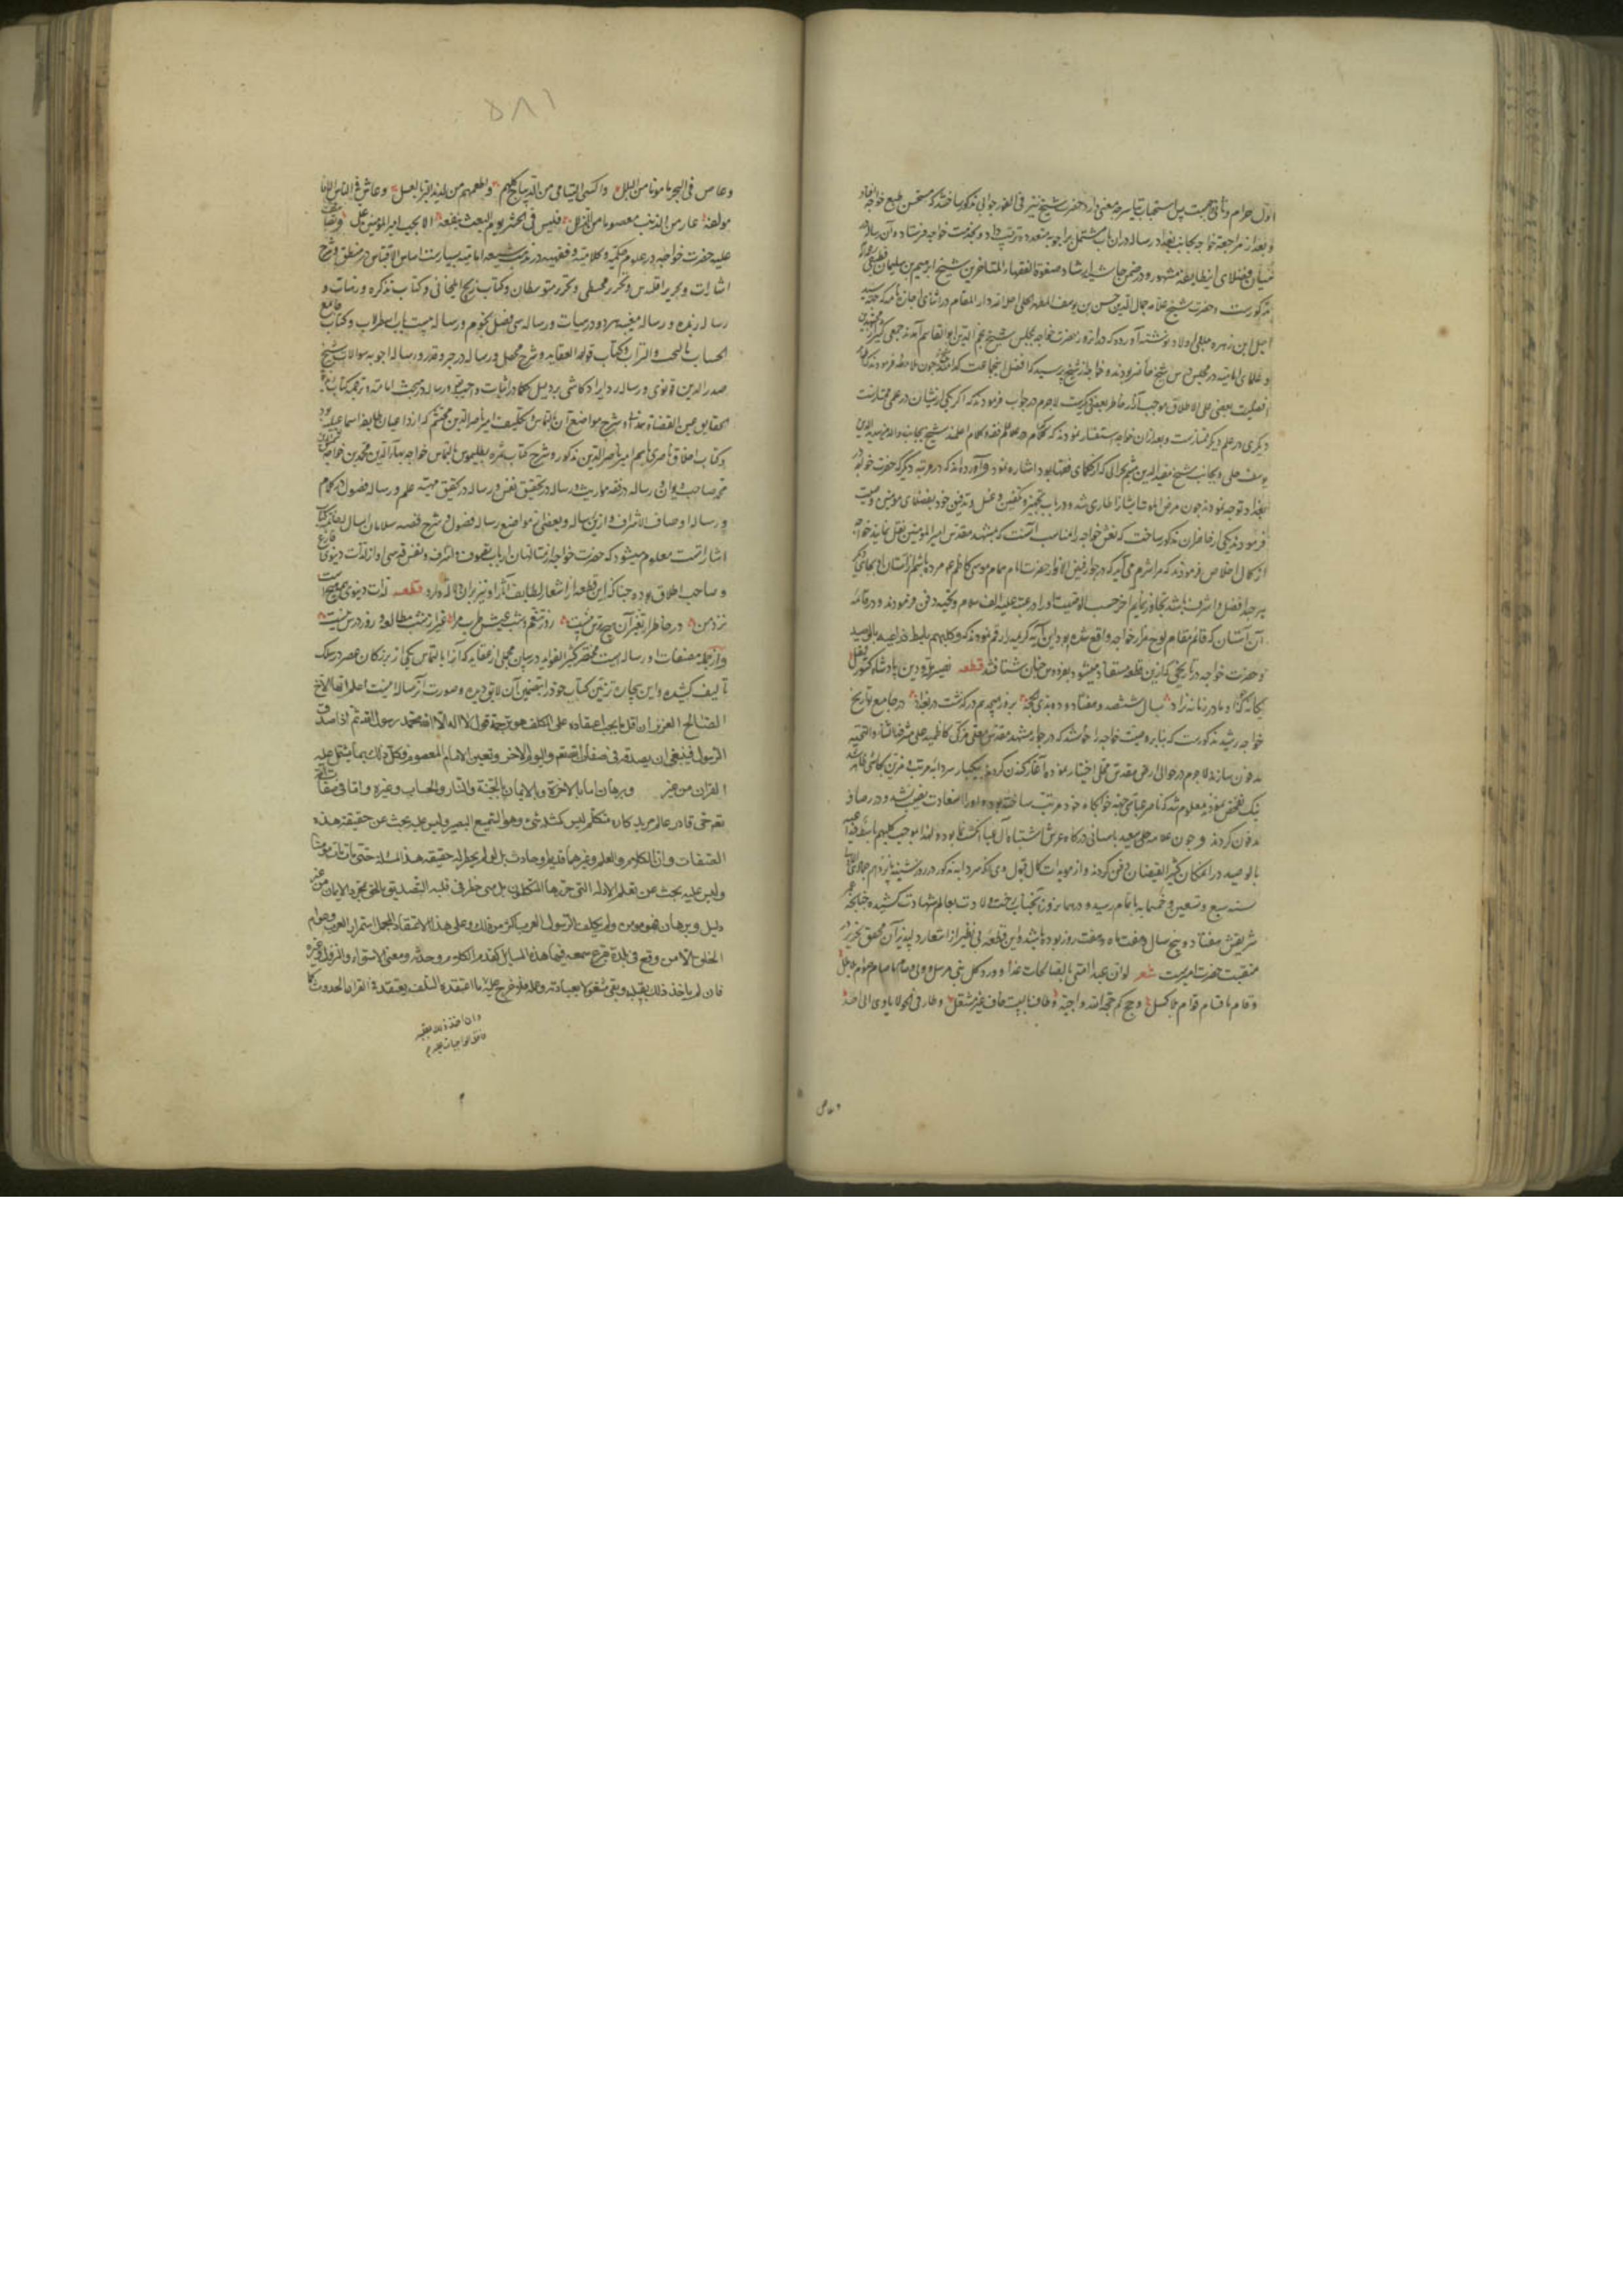 اول حرام و ثانی محبت پس استحباب تیاسر چه معنی دارد حضرت شیخ نیز فی الفور جوابی مذکور ساختند که مستحسن طبع خواجه افتاد
و بعد از مراجعت خواجه بجانب بغداد رساله در آن باب مشتمل بر اجوبه متعدده ترتیب داد و بخدمت خواجه فرستاد و آن رساله
میان فضلای این طایفه مشهور و در ضمن حاشیه ارشاد صفوة الفقهاء المتاخرین شیخ ابراهیم بن سلیمان قطیفی
مذکورست و حضرت شیخ علامه جمال الدین حسن بن یوسف المطهر الحلی احله الله دار المقام در اثنای اجازه نامه که جهت سید
اجل ابن زهره و بعضی اولاد او نوشته آورده که در آن روز حضرت خواجه بمجلس شیخ نجم الدین ابو القاسم آمدند جمعی کثیر از
و علمای امامیه در مجلس شیخ حاضر بودند و خواجه از شیخ پرسید که افضل این جماعت کدامند شیخ چون ملاحظه فرمودند که
افضلیت بعضی علی الاطلاق موجب آزار خاطر بعضی دیگرست لاجرم در جواب فرمودند که اگر یکی ازیشان در علمی ممتازست
دیگری در علم دیگر ممتازست و بعد از آن خواجه استفسار نمودند که کدام
یوسف حلی و بجانب شیخ مفید الدین بن جهم حلی که از حکمای فقها بود اشاره نمود و آورده‌اند که در مرتبه دیگر که حضرت خواجه
ببغداد توجه نمودند چون مرض
فرمودند یکی از حاضران مذکور ساخت که نعش خواجه را مناسب آنست که بمشهد مقدس امیر المؤمنین نقل نمایند خواجه
از کمال اخلاص فرمودند که مرا شرم می‌آید که در جوار فیض الانوار حضرت امام همام موسی کاظم ع مرده باشم از آستان او بجائی دیگر
هر چند افضل و اشرف باشد تجاوز نمایم آخر حسب الوصیت او را در عتبه علیه الف سلام و تحیه دفن فرمودند و در خاتمه
آن آستان که قائم مقام لوح مزار خواجه واقع شده بود این آیه کریمه را رقم نمودند که و کلبهم باسط ذراعیه بالوصید
و حضرت خواجه در تاریخی که ازین قطعه مستفاد میشود بفردوس جنان شتافتند قطعه نصیر ملت و دین پادشاه کشور فضل
یگانه که چو او مادر زمانه نزاد بسال ششصد و هفتاد و دو بذی الحجه بروز هیجدهم درگذشت در بغداد در جامع تاریخ
خواجه رشید مذکورست که بنابر وصیت خواجه راضی شدند که در جوار مشهد مقدس
مدفون سازند لاجرم در حوالی ارض مقدس محلی اختیار نموده آغاز کندن کردند بیکبار سردابه مرتب مزین بکاشی ظاهر شد
نیک تفحص نمودند معلوم شد که ناصر عباسی جهة خوابگاه خود مرتب ساخته بوده او را سعادت نصیب نشد و در رصافه
مدفون کردند و چون علامه حلی
بالوصید در آن مکان کثیر الفیضان دفن کردند و از مویدات کمال قبول وی آنکه سردابه مذکور در روز شنبه یازدهم جمادی الاولی
سنه سبع و تسعین و خمسمایه باتمام رسیده و در همان روز آنجناب
شریفش هفتاد و پنج سال و هفت ماه و هفت روز بوده باشد و این قطعه بی نظیر از اشعار دلپذیر آن محقق نحریر در
منقبت حضرت امیرست شعر لو ان عبدا اتی بالصالحات غدا و ود کل نبی مرسل و ولی و صام ما صام صوام بلا ملل
و قام ما قام قوام بلا کسل و حج کم حجة لله واجبة و طاف بالبیت حاف غیر منتعل و طار فی الجو لا یاوی الی احد
و غاص
٥٨١
و غاص فی البحر مامونا من البلل و اکسی الیتامی من الدیباج کلهم و اطعمهم من لذیذ البر بالعسل و عاش فی الناس الافا
مولفة عار من الذنب معصوما من الزلل فلیس فی الحشر یوم البعث ینفعه الا بحب امیر المؤمنین علی و تصانیف
علیه حضرت خواجه در علوم حکمیه و کلامیه و فقهیه در مذهب شیعه امامیه بسیارست اساس الاقتباس در منطق و شرح
اشارات و تحریر اقلیدس و تحریر مجسطی و تحریر متوسطات و کتاب زیج ایلخانی و کتاب تذکره در هیأت و
رساله زبده و رساله معینیه هر دو در هیأت و رساله سی فصل نجوم و رساله بیست باب اسطرلاب و کتاب جامع
الحساب بالتخت و التراب و کتاب قواعد العقاید و شرح محصل و رساله در جبر و قدر و رساله اجوبه سوالات شیخ
صدر الدین قونوی و رساله رد ایراد کاتبی بر دلیل حکما در اثبات واجب و رساله در مبحث امامت و ترجمه کتاب زبدة
الحقایق عین القضاة همدانی و شرح مواضع آن بالتماس و تکلیف امیر ناصر الدین محتشم که از داعیان طایفه اسماعیلیه بود
و کتاب اخلاق ناصری باسم امیر ناصر الدین مذکور و شرح کتاب ثمره بطلمیوس بالتماس خواجه بهاء الدین محمد بن خواجه شمس الدین
محمد صاحب دیوان و رساله در فقه مواریث و رساله در تحقیق نفس و رساله در تحقیق مهیة علم و رساله فصول در کلام
و رساله اوصاف الاشراف و ازین رساله و بعضی از مواضع رساله فصول و شرح قصه سلامان و ابسال
اشاراتست معلوم میشود که حضرت خواجه از
و صاحب اطلاق بوده چنانکه این قطعه از اشعار لطایف آثار او نیز بر آن دلالت دارد قطعه لذات دنیوی همه هیچست
نزد من در خاطر از تغیر آن هیچ ترس نیست روز تنعم و شب عیش و طرب مرا غیر از شب مطالعه و روز درس نیست
و از جمله مصنفات او رساله‌ایست مختصر کثیر الفواید در بیان مجملی از عقاید که آنرا بالتماس یکی از بزرگان عصر در سلک
تألیف کشیده و این بیچاره تزیین کتاب خود را بتضمین آن لایق دیده و صورت آن رساله اینست اعلم ایها الاخ
الصالح العزیز ان اقل ما یجب اعتقاده علی المکلف هو ترجمة قول لا اله الا الله محمد رسول الله ثم اذا صدق
الرسول فینبغی ان یصدقه فی صفات الله تعالی و الیوم الاخر و تعیین الامام المعصوم و کل ذلک بما یشتمل علیه
القران من غیر و برهان اما بالاخرة فالایمان بالجنة و النار و الحساب و غیره و اما فی صفات الله
تعالی حی قادر عالم مرید کاره متکلم لیس کمثله شیء و هو السمیع البصیر و لیس علیه بحث عن حقیقة هذه
الصفات و ان الکلام و العلم و غیرهما قدیم او حادث بل لو لم یخطر له حقیقة هذه المسئلة حتی مات مات مؤمنا
و لیس علیه بحث عن تعلم الادلة التی حررها المتکلمون بل متی خطر فی قلبه التصدیق بالحق بمجرد الایمان من غیر
دلیل و برهان فهو مؤمن و لم یکلف الرسول العرب اکثر من ذلک و علی هذا الاعتقاد المجمل استمرار العرب و عوام
الخلق الا من وقع فی بلدة یقرع سمعه فیها هذه المسایل کقدم الکلام و حدوثه و معنی الاستواء و النزول و غیره
فان لم یاخذ ذلک بقلبه و بقی مشغولا بعبادته و عمله فلا حرج علیه
وان اخذ ذلک بقلبه